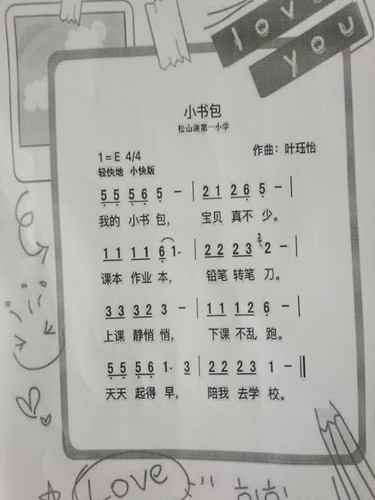 love
YOU
小书包
松山湖第一小学
1=E 4/4
作曲：叶珏怡
轻快地 小快版
5 5 5 6 5 - | 2 1 2 6 5 - |
我的 小书 包， 宝贝 真不 少。
1 1 1 1 6 1· | 2 2 2 3 3 2 - |
课本 作业 本， 铅笔 转笔 刀。
3 3 3 2 3 - | 1 1 1 2 6 - |
上课 静悄 悄， 下课 不乱 跑。
5 5 5 6 1· 3 | 2 2 2 3 1 - ‖
天天 起得 早， 陪我 去学 校。
Love